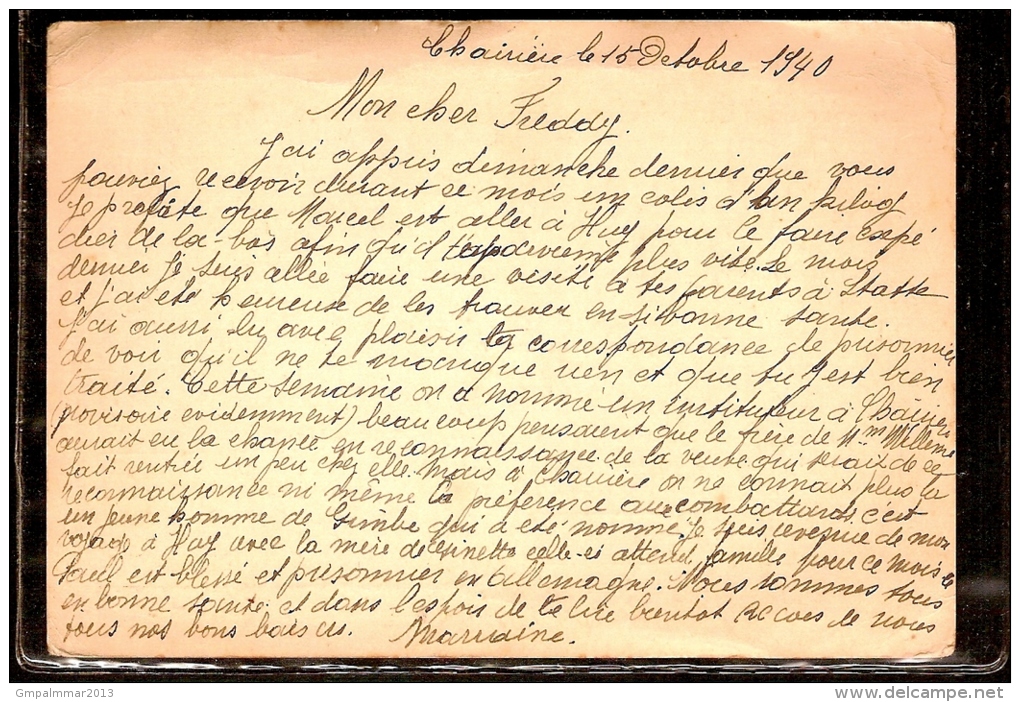 Chairière le 15 Octobre 1940
Mon cher Freddy.
J'ai appris dimanche dernier que vous
pouviez recevoir durant ce mois un colis d'un kilog
Je profite que Marcel est aller à Huy pour le faire expé
dier de la-bas afin qu'il te parvienne plus vite. Le mois
dernier je suis allée faire une visite à tes parents à Statte
et j'ai été heureuse de les trouver en si bonne santé.
J'ai aussi lu avec plaisir ta correspondance de prisonnier
de voir qu'il ne te manque rien et que tu y est bien
traité. Cette semaine on a nommé un instituteur à Chairière
(provisoire evidemment) beaucoup pensaient que le frère de Mme Willeme
aurait eu la chance en reconnaissance de la vente qui
fait rentrer un peu chez elle. Mais à Chairière on ne connait plus la
reconnaissance ni même la préférence aux combattants c'est
un jeune homme de Gimbe qui a été nommé. Je suis revenue de mon
voyage à Huy avec la mère de Ginette celle-ci attend famille pour ce mois le
Paul est blessé et prisonnier en Allemagne. Nous sommes tous
en bonne santé et dans l'espoir de te lire bientot recois de nous
tous nos bons baisers. Marraine.
Gmpalmmar2013
www.delcampe.net